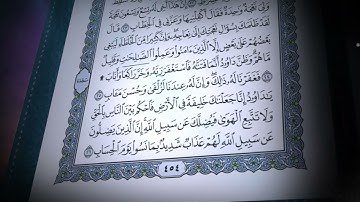 وَلِىَ نَعْجَةٌ وَٰحِدَةٌ فَقَالَ أَكْفِلْنِيهَا وَعَزَّنِى فِى ٱلْخِطَابِ ٢٣ قَالَ
لَقَدْ ظَلَمَكَ بِسُؤَالِ نَعْجَتِكَ إِلَىٰ نِعَاجِهِۦ وَإِنَّ كَثِيرًا مِّنَ ٱلْخُلَطَآءِ لَيَبْغِى
بَعْضُهُمْ عَلَىٰ بَعْضٍ إِلَّا ٱلَّذِينَ ءَامَنُوا۟ وَعَمِلُوا۟ ٱلصَّٰلِحَٰتِ وَقَلِيلٌ
مَّا هُمْ وَظَنَّ دَاوُۥدُ أَنَّمَا فَتَنَّٰهُ فَٱسْتَغْفَرَ رَبَّهُۥ وَخَرَّ رَاكِعًا وَأَنَابَ ۩ ٢٤
فَغَفَرْنَا لَهُۥ ذَٰلِكَ وَإِنَّ لَهُۥ عِندَنَا لَزُلْفَىٰ وَحُسْنَ مَـَٔابٍ ٢٥
يَٰدَاوُۥدُ إِنَّا جَعَلْنَٰكَ خَلِيفَةً فِى ٱلْأَرْضِ فَٱحْكُم بَيْنَ ٱلنَّاسِ بِٱلْحَقِّ
وَلَا تَتَّبِعِ ٱلْهَوَىٰ فَيُضِلَّكَ عَن سَبِيلِ ٱللَّهِ إِنَّ ٱلَّذِينَ يَضِلُّونَ
عَن سَبِيلِ ٱللَّهِ لَهُمْ عَذَابٌ شَدِيدٌۢ بِمَا نَسُوا۟ يَوْمَ ٱلْحِسَابِ ٢٦
٤٥٤